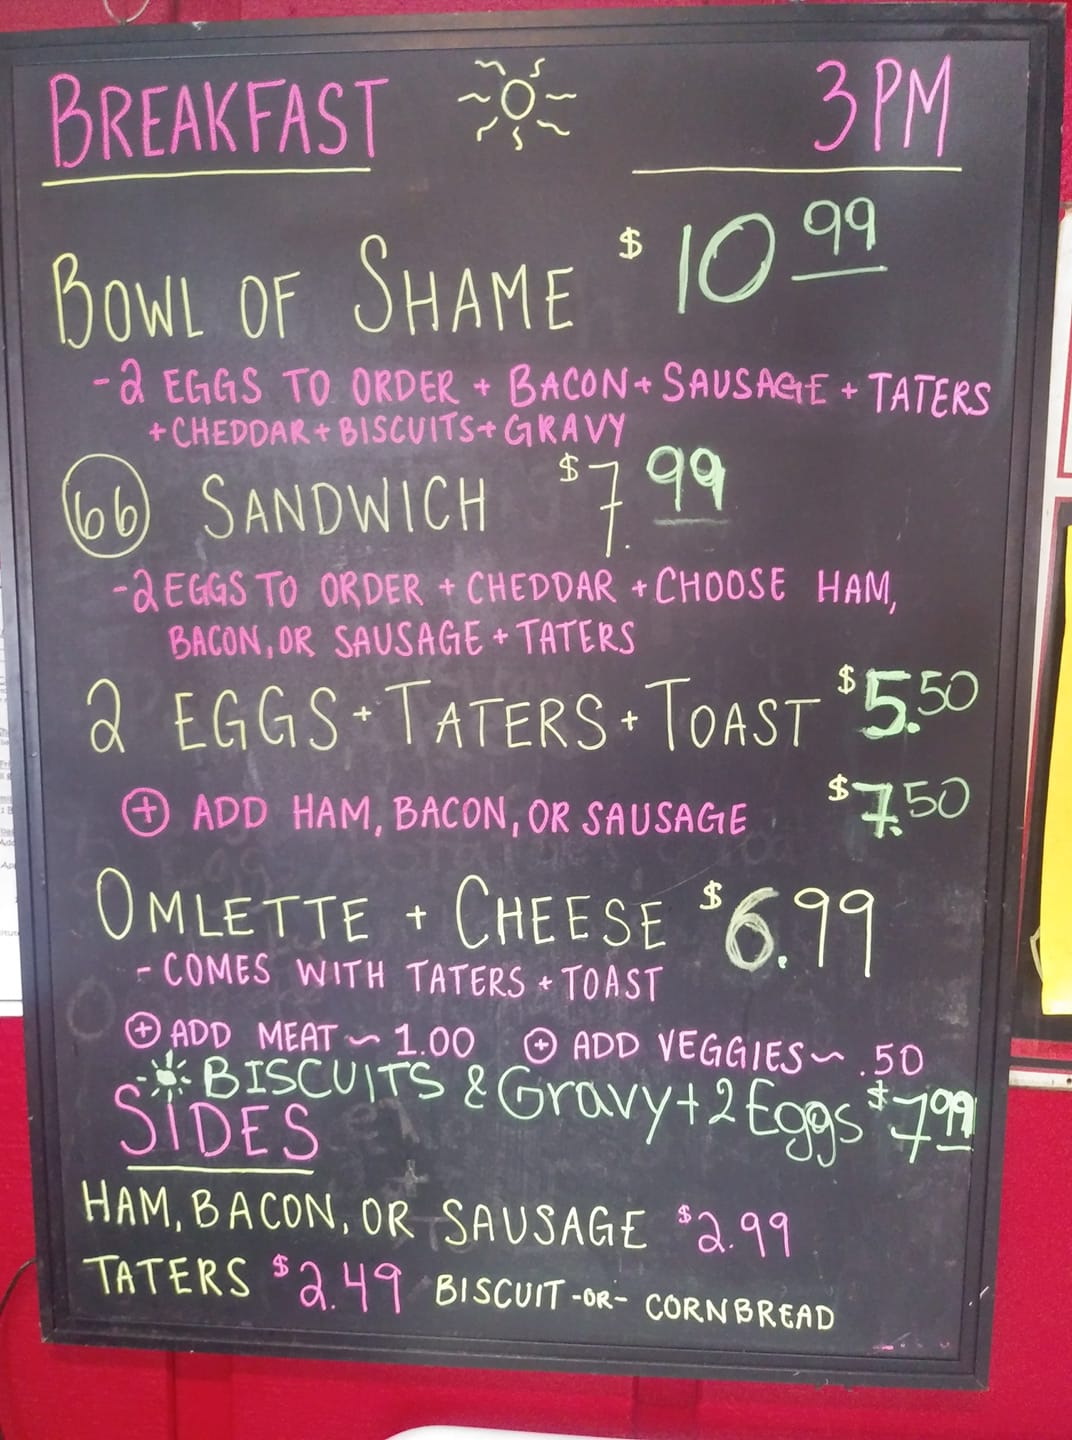 BREAKFAST 3PM
BOWL OF SHAME $10.99
-2 EGGS TO ORDER + BACON + SAUSAGE + TATERS
+ CHEDDAR + BISCUITS + GRAVY
66 SANDWICH $7.99
-2 EGGS TO ORDER + CHEDDAR + CHOOSE HAM,
BACON, OR SAUSAGE + TATERS
2 EGGS + TATERS + TOAST $5.50
+ ADD HAM, BACON, OR SAUSAGE $7.50
OMLETTE + CHEESE $6.99
- COMES WITH TATERS + TOAST
+ ADD MEAT ~ 1.00 + ADD VEGGIES ~ .50
BISCUITS & Gravy + 2 Eggs $7.99
SIDES
HAM, BACON, OR SAUSAGE $2.99
TATERS $2.49 BISCUIT -OR- CORNBREAD